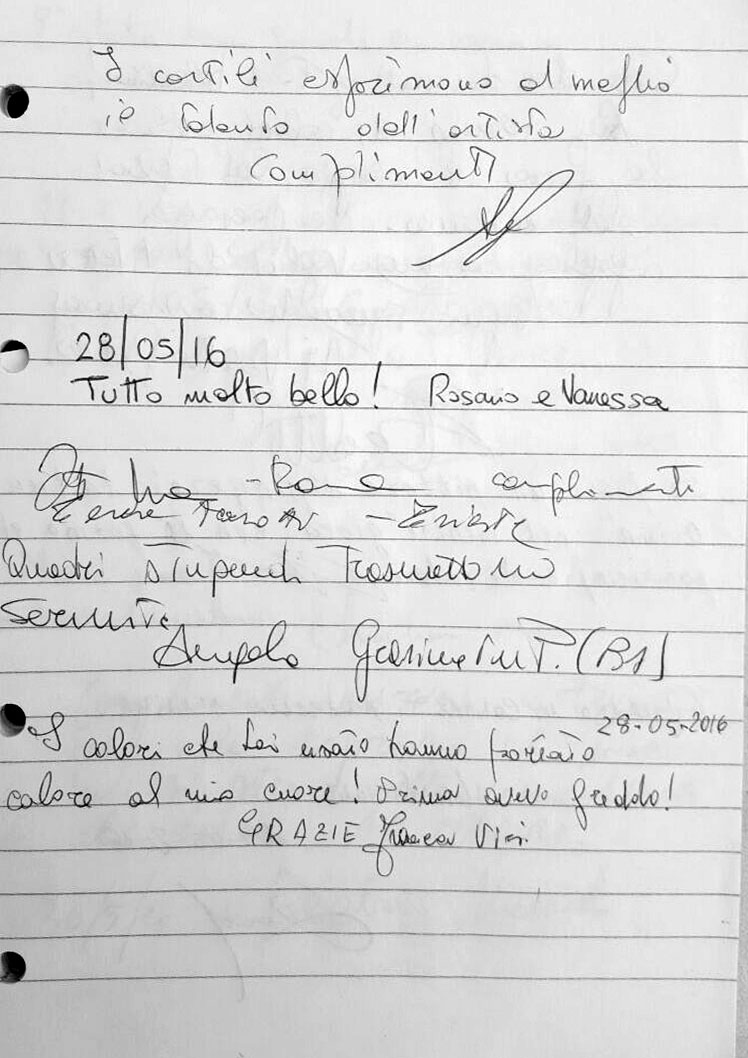 I cortili esprimono al meglio
il talento dell'artista
Complimenti
28/05/16
Tutto molto bello! Rosario e Vanessa
- Roma complimenti
- Trieste
Quadri stupendi trasmettono
serenità
Angelo (BA)
28-05-2016
I colori che Lei usato hanno portato
calore al mio cuore! Prima avevo freddo!
GRAZIE Franca